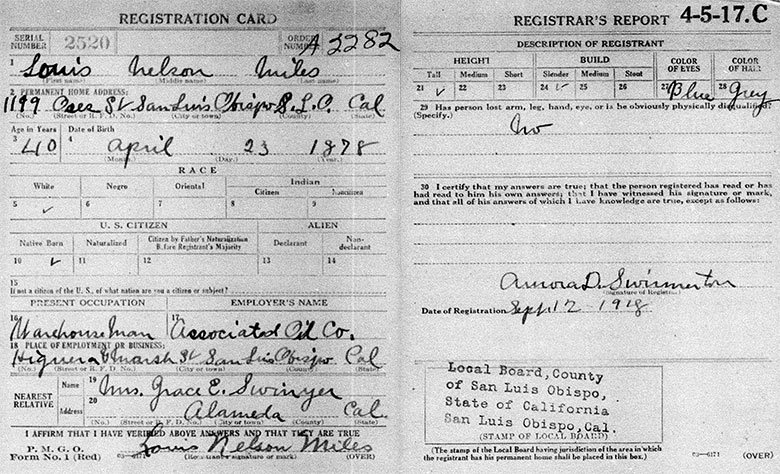 REGISTRATION CARD
SERIAL NUMBER 2520 ORDER NUMBER A2282
1 Louis Nelson Miles
(First name) (Middle name) (Last name)
2 PERMANENT HOME ADDRESS:
1199 St San Luis Obispo S.L.O. Cal
(No.) (Street or R. F. D. No.) (City or town) (County) (State)
Age in Years Date of Birth
3 40 4 April 23 1878
(Month.) (Day.) (Year.)
RACE
White Negro Oriental Indian
Citizen Noncitizen
5 ✓ 6 7 8 9
U. S. CITIZEN ALIEN
Native Born Naturalized Citizen by Father's Naturalization Before Registrant's Majority Declarant Non-declarant
10 ✓ 11 12 13 14
15
If not a citizen of the U. S., of what nation are you a citizen or subject?
PRESENT OCCUPATION EMPLOYER'S NAME
16 Warehouseman 17 Associated Oil Co.
18 PLACE OF EMPLOYMENT OR BUSINESS:
Higuera & Marsh St San Luis Obispo Cal
(No.) (Street or R. F. D. No.) (City or town) (County) (State)
NEAREST RELATIVE Name 19 Mrs. Grace E. Swinyer
Address 20 Alameda Cal.
(No.) (Street or R. F. D. No.) (City or town) (County) (State)
I AFFIRM THAT I HAVE VERIFIED ABOVE ANSWERS AND THAT THEY ARE TRUE
P. M. G. O.
Form No. 1 (Red) Louis Nelson Miles
(Registrant's signature or mark) (OVER)
REGISTRAR'S REPORT 4-5-17.C
DESCRIPTION OF REGISTRANT
HEIGHT BUILD COLOR OF EYES COLOR OF HAIR
Tall Medium Short Slender Medium Stout
21 ✓ 22 23 24 ✓ 25 26 27 Blue 28 Grey
29 Has person lost arm, leg, hand, eye, or is he obviously physically disqualified?
(Specify.) No
30 I certify that my answers are true; that the person registered has read or has
had read to him his own answers; that I have witnessed his signature or mark,
and that all of his answers of which I have knowledge are true, except as follows:
D. Swinnerton
(Signature of Registrar)
Date of Registration Sept. 12 1918
Local Board, County
of San Luis Obispo,
State of California
San Luis Obispo, Cal.
(STAMP OF LOCAL BOARD)
(The stamp of the Local Board having jurisdiction of the area in which
the registrant has his permanent home shall be placed in this box.) (OVER)